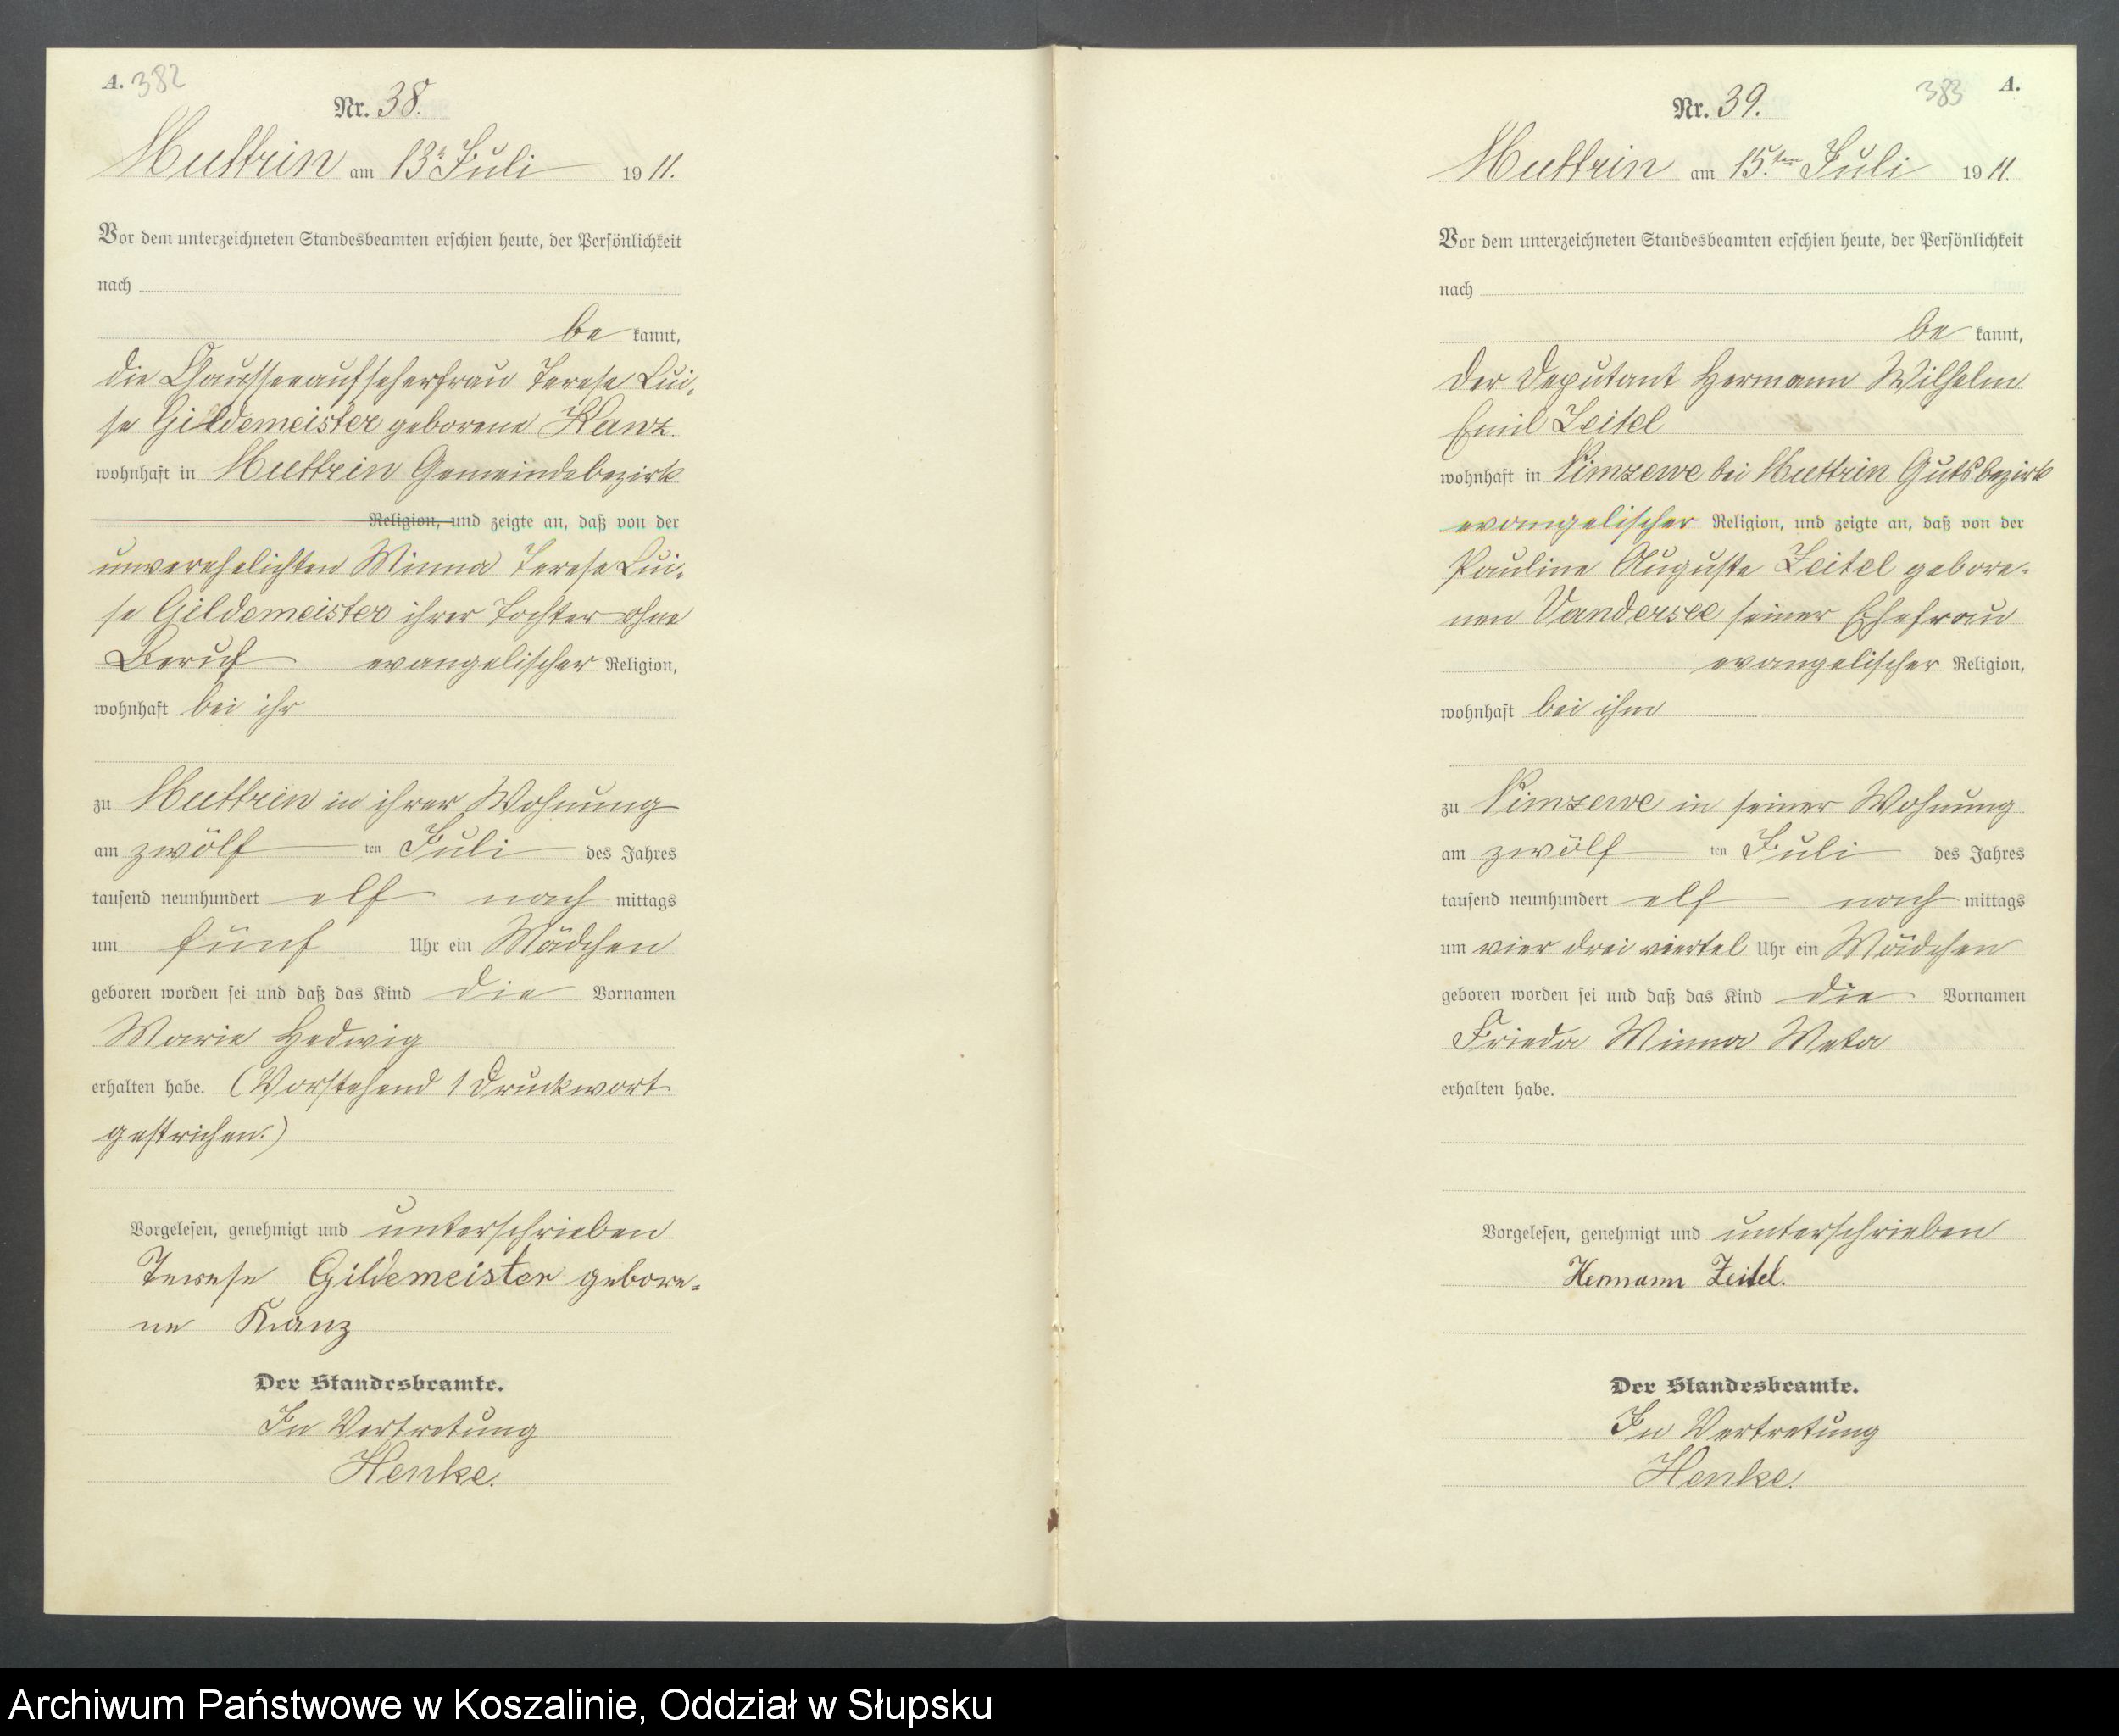 A. 382
Nr. 38.
Muttrin am 13t Juli 1911.
Vor dem unterzeichneten Standesbeamten erschien heute, der Persönlichkeit
nach
be kannt,
die Chausseeaufseherfrau Terese Lui-
se Gildemeister geborene Kanz
wohnhaft in Muttrin Gemeindebezirk
Religion, und zeigte an, daß von der
unverehelichten Minna Terese Lui-
se Gildemeister ihrer Tochter ohne
Beruf evangelischer Religion,
wohnhaft bei ihr
zu Muttrin in ihrer Wohnung
am zwölf ten Juli des Jahres
tausend neunhundert elf nach mittags
um fünf Uhr ein Mädchen
geboren worden sei und daß das Kind die Vornamen
Marie Hedwig
erhalten habe. (Vorstehend 1 Druckwort
gestrichen.)
Vorgelesen, genehmigt und unterschrieben
Terese Gildemeister gebore-
ne Kanz
Der Standesbeamte.
In Vertretung
Henke.
383 A.
Nr. 39.
Muttrin am 15.ten Juli 1911.
Vor dem unterzeichneten Standesbeamten erschien heute, der Persönlichkeit
nach
be kannt,
der Deputant Hermann Wilhelm
Emil Zeitel
wohnhaft in Nimzewe bei Muttrin Gutsbezirk
evangelischer Religion, und zeigte an, daß von der
Pauline Auguste Zeitel gebore-
nen Vandersee seiner Ehefrau
evangelischer Religion,
wohnhaft bei ihm
zu Nimzewe in seiner Wohnung
am zwölf ten Juli des Jahres
tausend neunhundert elf nach mittags
um vier drei viertel Uhr ein Mädchen
geboren worden sei und daß das Kind die Vornamen
Frieda Minna Meta
erhalten habe.
Vorgelesen, genehmigt und unterschrieben
Hermann Zeitel.
Der Standesbeamte.
In Vertretung
Henke.
Archiwum Państwowe w Koszalinie, Oddział w Słupsku